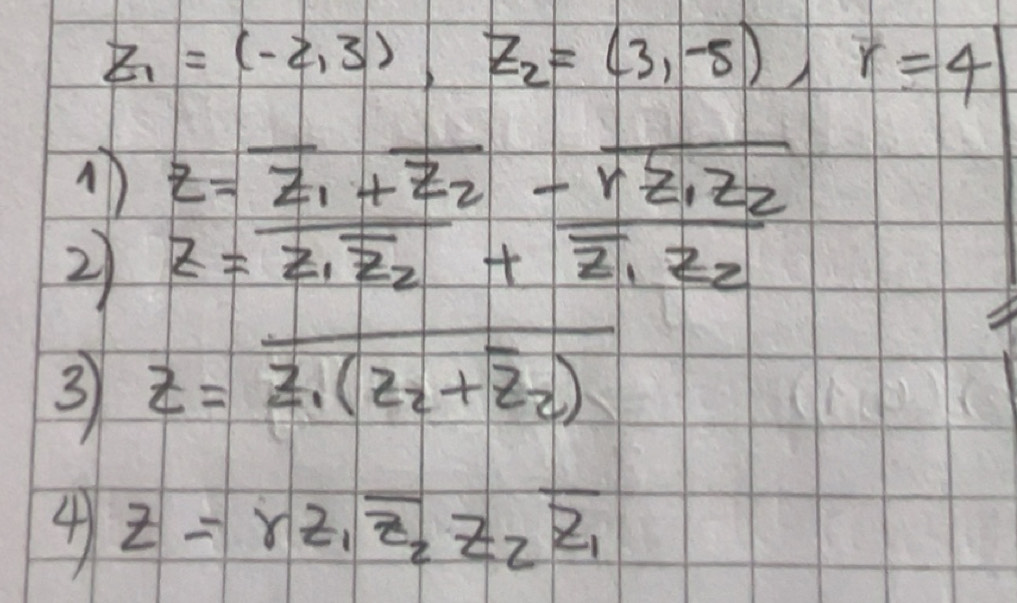 z₁ = (-2,3), z₂ = (3,-5), r = 4
1) z = z̅₁ + z̅₂ - \overline{r z₁ z₂}
2) z = \overline{z₁ z̅₂} + \overline{z̅₁ z₂}
3) z = \overline{z₁(z₂ + z̅₂)}
4) z = r z₁ z̅₂ z₂ z̅₁